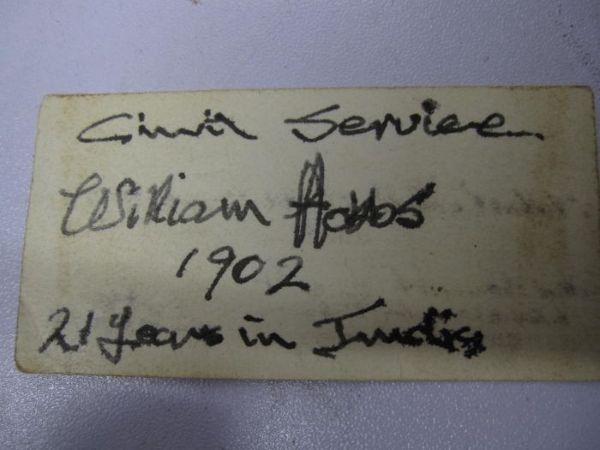 Civil Service
William Hobbs
1902
21 years in India